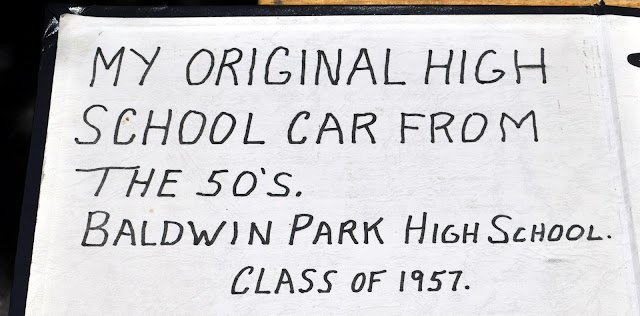 MY ORIGINAL HIGH
SCHOOL CAR FROM
THE 50'S.
BALDWIN PARK HIGH SCHOOL.
CLASS OF 1957.